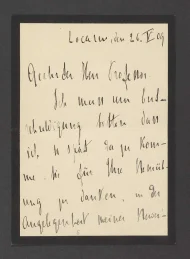 Locarno, den 26. V 09
Geehrter Herr Professor
Ich muss um Ent-
schuldigung bitten dass
ich so spät dazu kom-
me Sie für Ihre Bemüh-
ung zu danken, in der
Angelegenheit meiner